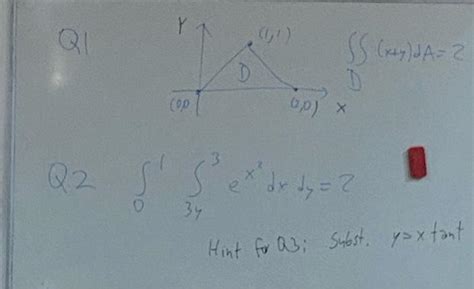 Q1
Y
(1,1)
D
(0,0)
X
∫∫ (x+y)dA=?
D
Q2 ∫₀¹ ∫₃ᵧ³ e^{x²} dx dy = ?
Hint for Q3: Subst. y=x tant